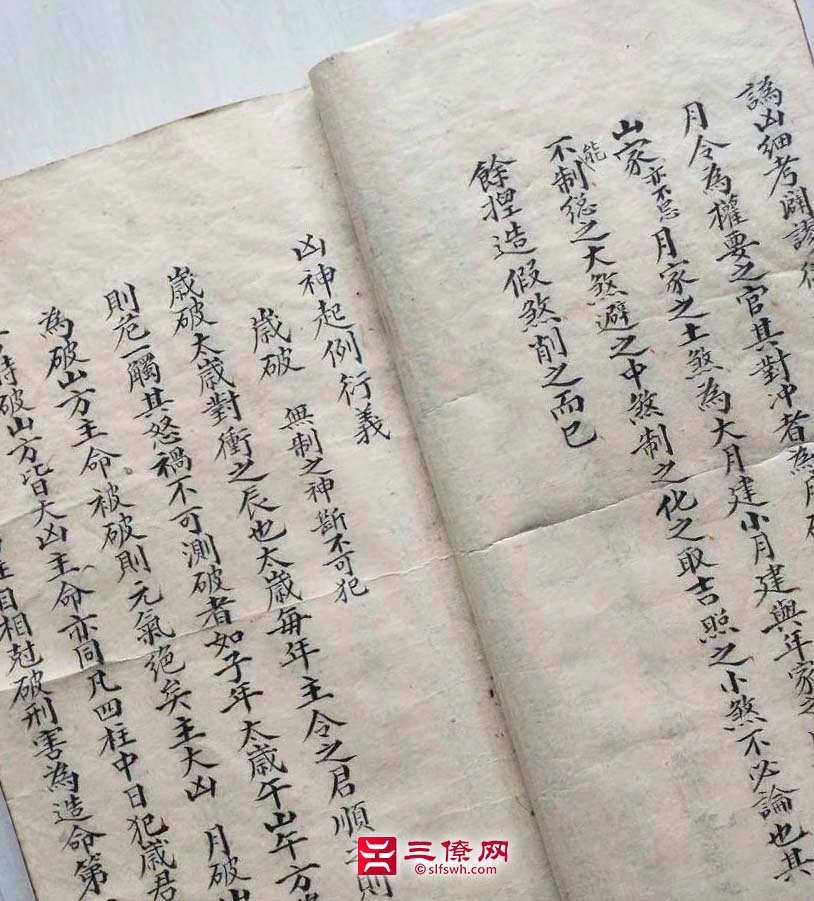 凶細考闢謬
月令為權要之官其對冲者為月破
山家亦不忌月家之土煞為大月建小月建與年家之
不能制総之大煞避之中煞制之化之取吉照之小煞不必論也其
餘捏造假煞削之而已
凶神起例行義
歲破 無制之神斷不可犯
歲破太歲對衝之辰也太歲每年主令之君順則
則危一觸其怒禍不可測破者如子年太歲午山午方
為破山方主命被破則元氣絕矣主大凶 月破山
時破山方皆大凶主命亦同凡四柱中日犯歲君
柱自相尅破刑害為造命第
三僚网
slfswh.com